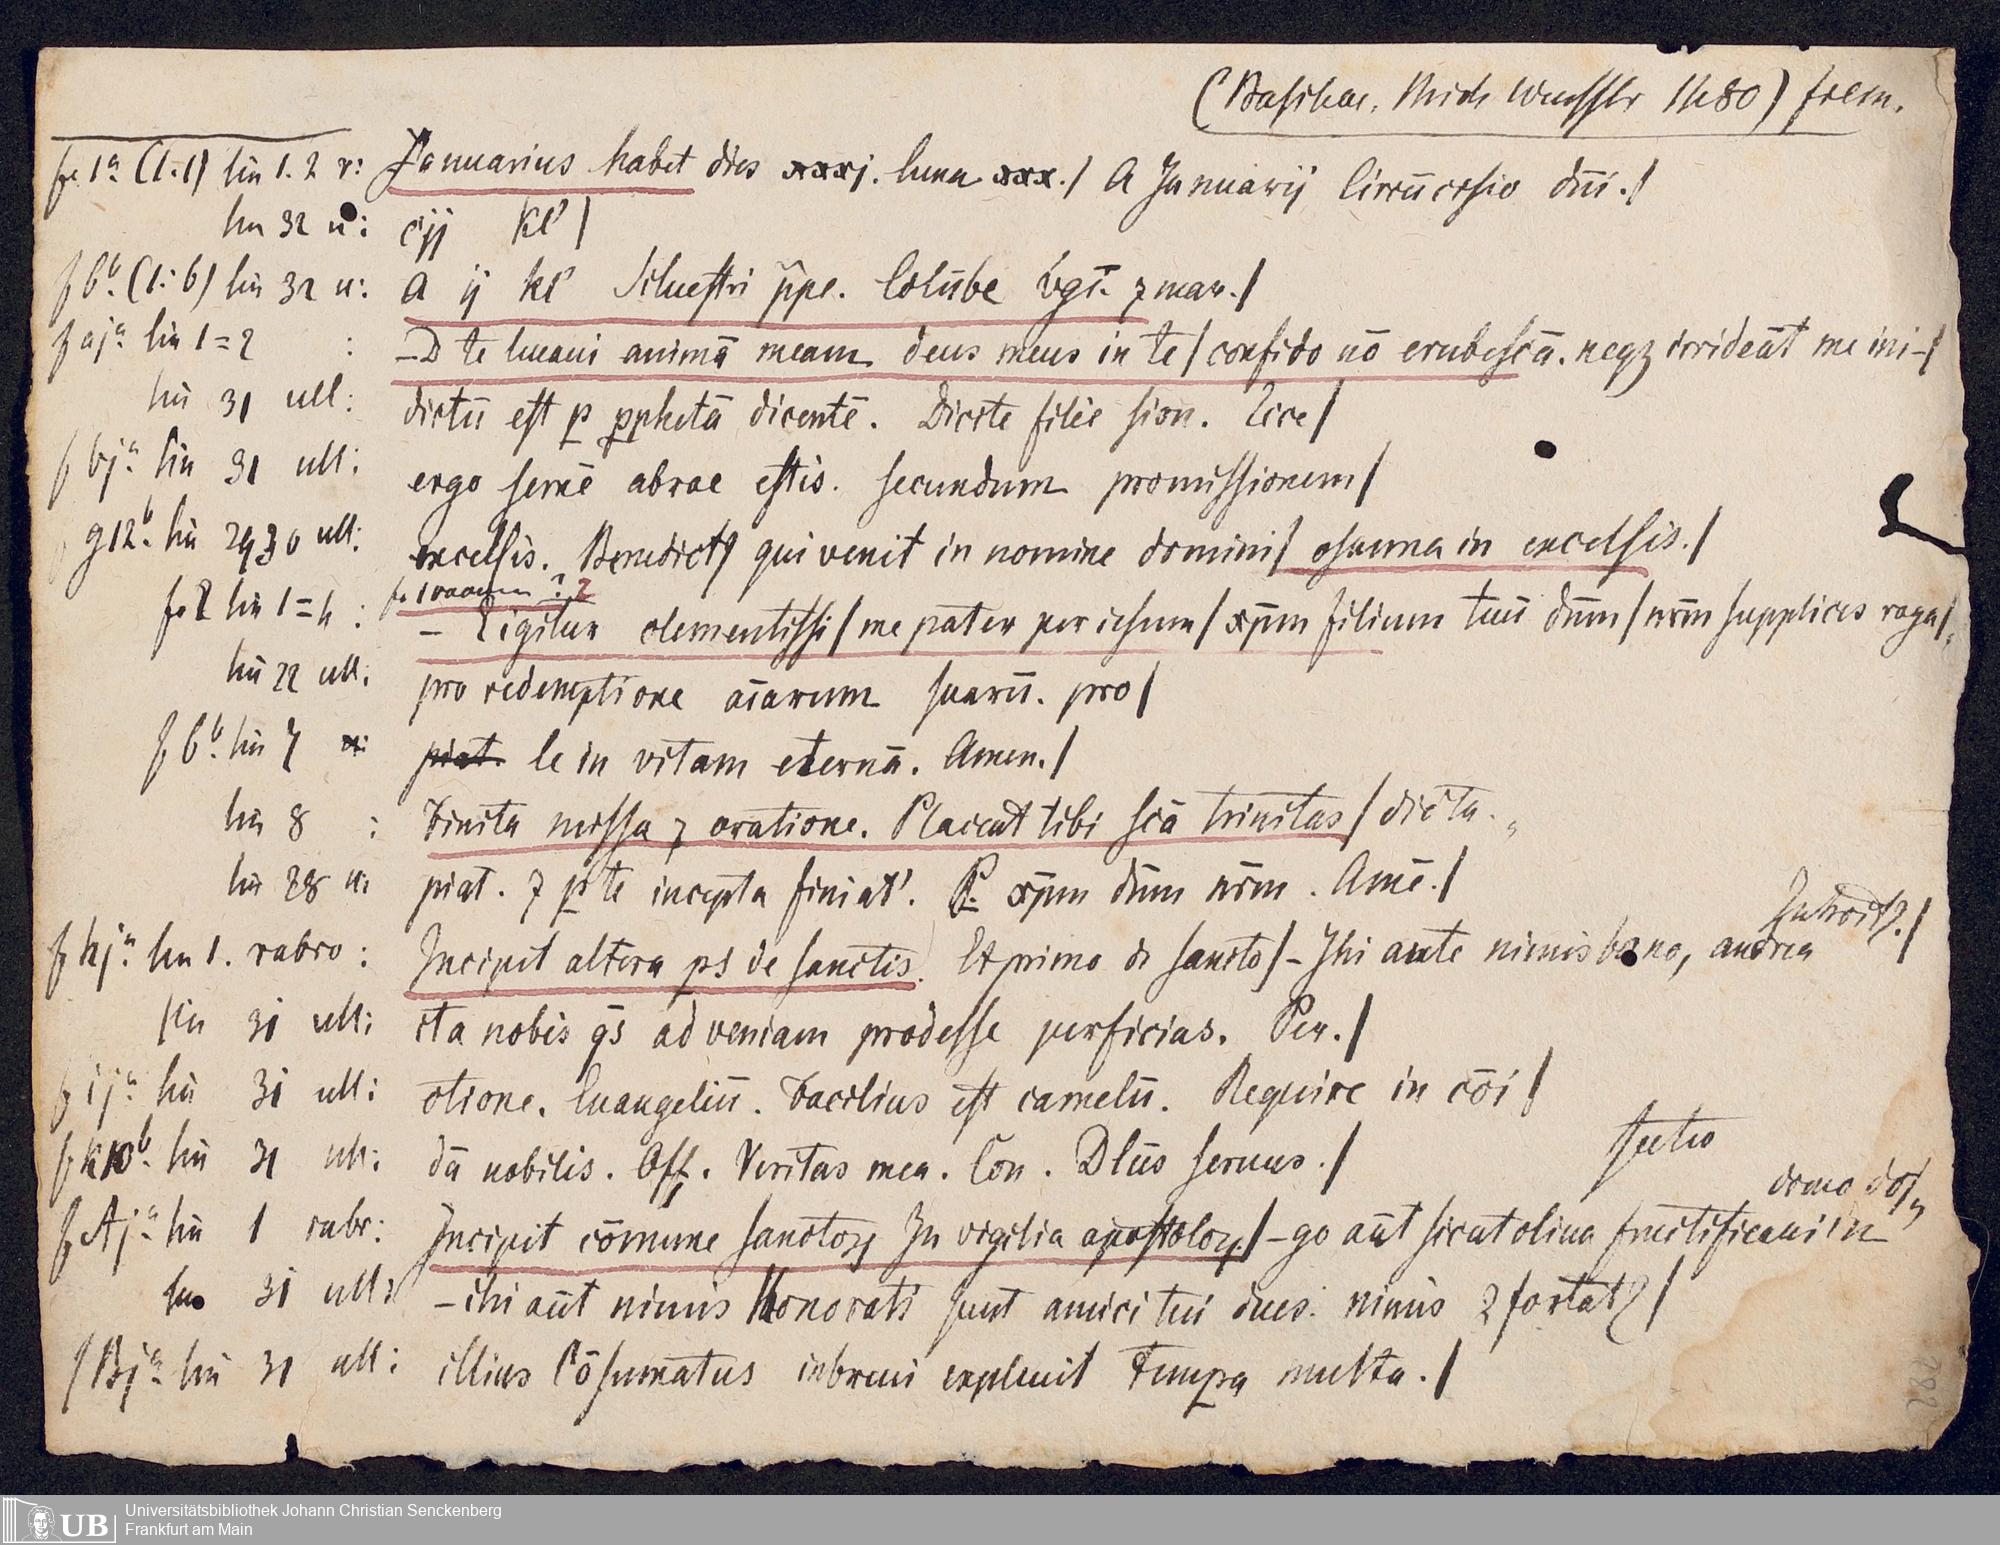 (Basileae. Mich Wenssler 1480) frem.
fo 1a. (1.1) lin 1. 2 r: Januarius habet dies xxxj. luna xxx./ A Januarij Circūcisio dn̄i./
lin 32 u: cijj kl'/
f 6b. (1.6) lin 32 u: A ij kl' Siluestri ppe. Colūbe vgī. ⁊ mar./
f aja. lin 1=2 : –D te leuaui animā meam deus meus in te/ confido nō erubescā. neqꝫ irrideāt me ini–/
lin 31 ult: dictū est p pphetā dicentē. Dicite filie sion. Ecce/
f bja. lin 31 ult: ergo semē abrae estis. secundum promissionem/
g12b. lin 29 30 ult: excelsis. Benedictꝯ qui venit in nomine domini/ osanna in excelsis./
fo canonum ? 2
fo 2 lin 1=4 : – Eigitur clementissi/me pater per iesum/ xp̄m filium tuū dn̄m/ nr̄m supplices roga/
lin 22 ult: pro redemptione aīarum suarū. pro/
f 6b. lin 7 u: piat. le in vitam eternā. Amen./
lin 8 : Finita missa ⁊ oratione. Placeat tibi scā trinitas/ dicta.
lin 28 u: piat. ⁊ p te incepta finiat'. P. xp̄m dn̄m nr̄m. Amē./
Introitꝯ./
f hja. lin 1. rubro : Incipit altera ps de sanctis. Et primo de sancto/ – Ihi aute nimis bono, andrea
lin 31 ult: cta nobis qs ad veniam prodesse perficias. Per./
f ija. lin 31 ult: ctione. Euangeliū. Facilius est camelū. Require in cōi/
f k10b. lin 31 ult: dā nobilis. Off. Veritas mea. Con. Dlūs seruus./
domo do/
f Aja. lin 1 rubr: Incipit cōmune sanctoꝝ In vigilia apostoloꝝ/ – go aūt sicut oliua fructificaui in
lin 31 ult: – ihi aūt nimis Honorati sunt amici tui deus. nimis 2fortatꝯ/
f Bja. lin 31 ult: illius Cōsumatus in breui expleuit tempa multa./
782
Universitätsbibliothek Johann Christian Senckenberg
UB Frankfurt am Main